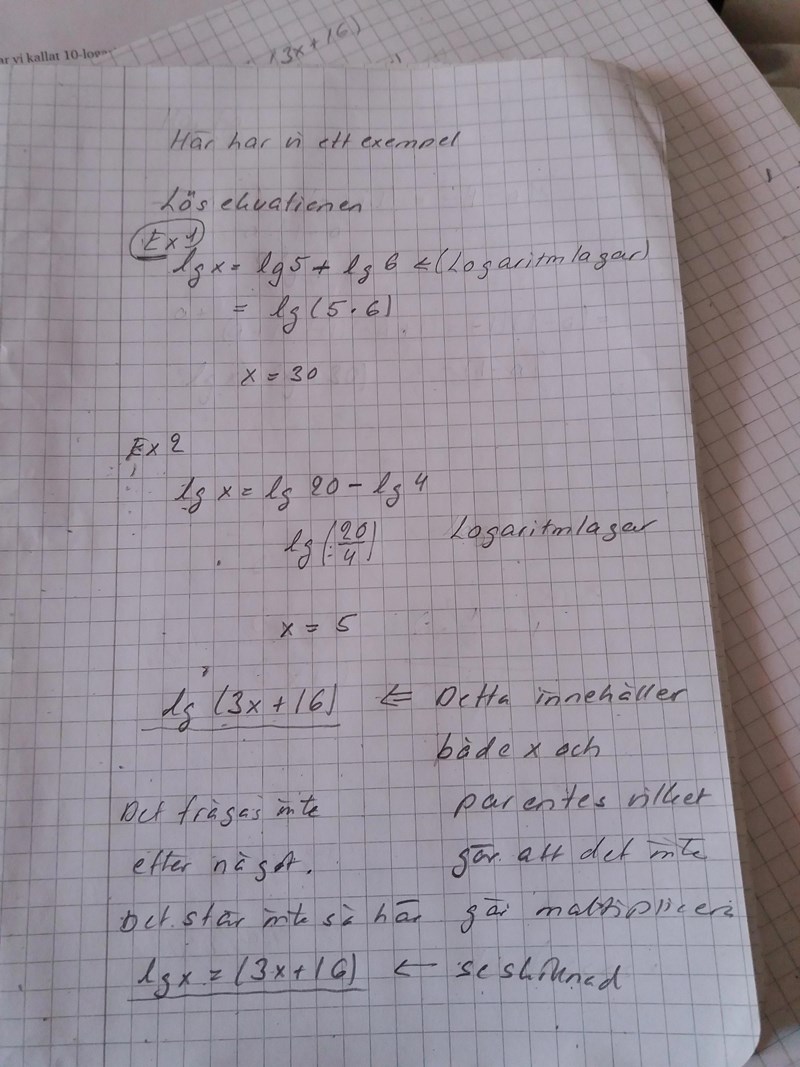 ar vi kallat 10-loga
(3x+16)
Här har vi ett exempel
Lös ekvationen
Ex 1
lg x = lg 5 + lg 6 ← (Logaritmlagar)
= lg (5·6)
x = 30
Ex 2
lg x = lg 20 - lg 4
lg (20/4) Logaritmlagar
x = 5
lg (3x+16) ⇐ Detta innehåller
både x och
Det frågas inte parentes vilket
efter något. gör att det inte
Det står inte så här går multiplicera
lg x = (3x+16) ← se skillnad